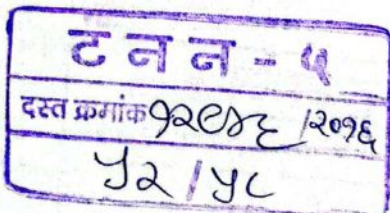 ट न न - ५
दस्त क्रमांक १२९४६ /२०१६
५२ / ५८